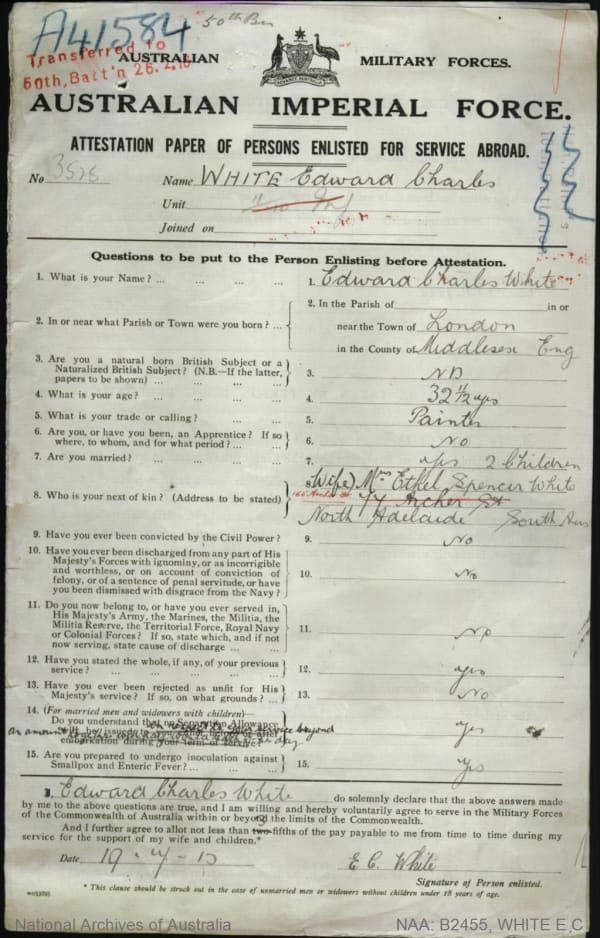 A41584 50th Bn
Transferred to
50th, Batt'n 26.2.16
AUSTRALIAN MILITARY FORCES.
AUSTRALIAN IMPERIAL FORCE.
ATTESTATION PAPER OF PERSONS ENLISTED FOR SERVICE ABROAD.
No 3525 Name WHITE Edward Charles
Unit
Joined on
Questions to be put to the Person Enlisting before Attestation.
1. What is your Name? ... ... ... ... 1. Edward Charles White
2. In or near what Parish or Town were you born? ... 2. In the Parish of in or
near the Town of London
in the County of Middlesex Eng
3. Are you a natural born British Subject or a
Naturalized British Subject? (N.B.—If the latter,
papers to be shown) ... ... ... ... 3. NB
4. What is your age? ... ... ... ... 4. 32 11/12 yrs
5. What is your trade or calling? ... ... 5. Painter
6. Are you, or have you been, an Apprentice? If so
where, to whom, and for what period? ... ... 6. No
7. Are you married? ... ... ... ... 7. yes 2 Children
8. Who is your next of kin? (Address to be stated) 8. Wife) Mrs Ethel Spencer White
Archer St
North Adelaide South Aus
9. Have you ever been convicted by the Civil Power? 9. No
10. Have you ever been discharged from any part of His
Majesty's Forces with ignominy, or as incorrigible
and worthless, or on account of conviction of
felony, or of a sentence of penal servitude, or have
you been dismissed with disgrace from the Navy? 10. No
11. Do you now belong to, or have you ever served in,
His Majesty's Army, the Marines, the Militia, the
Militia Reserve, the Territorial Force, Royal Navy
or Colonial Forces? If so, state which, and if not
now serving, state cause of discharge ... ... 11. No
12. Have you stated the whole, if any, of your previous
service? ... ... ... ... ... 12. yes
13. Have you ever been rejected as unfit for His
Majesty's service? If so, on what grounds? ... 13. No
14. (For married men and widowers with children)—
Do you understand that no Separation Allowance
will be issued
embarkation during your term of service? 14. Yes
15. Are you prepared to undergo inoculation against
Smallpox and Enteric Fever? ... ... ... 15. Yes
I, Edward Charles White do solemnly declare that the above answers made
by me to the above questions are true, and I am willing and hereby voluntarily agree to serve in the Military Forces
of the Commonwealth of Australia within or beyond the limits of the Commonwealth.
And I further agree to allot not less than two-fifths of the pay payable to me from time to time during my
service for the support of my wife and children.*
Date 19-7-15 E. C. White
Signature of Person enlisted.
* This clause should be struck out in the case of unmarried men or widowers without children under 18 years of age.
National Archives of Australia NAA: B2455, WHITE E C